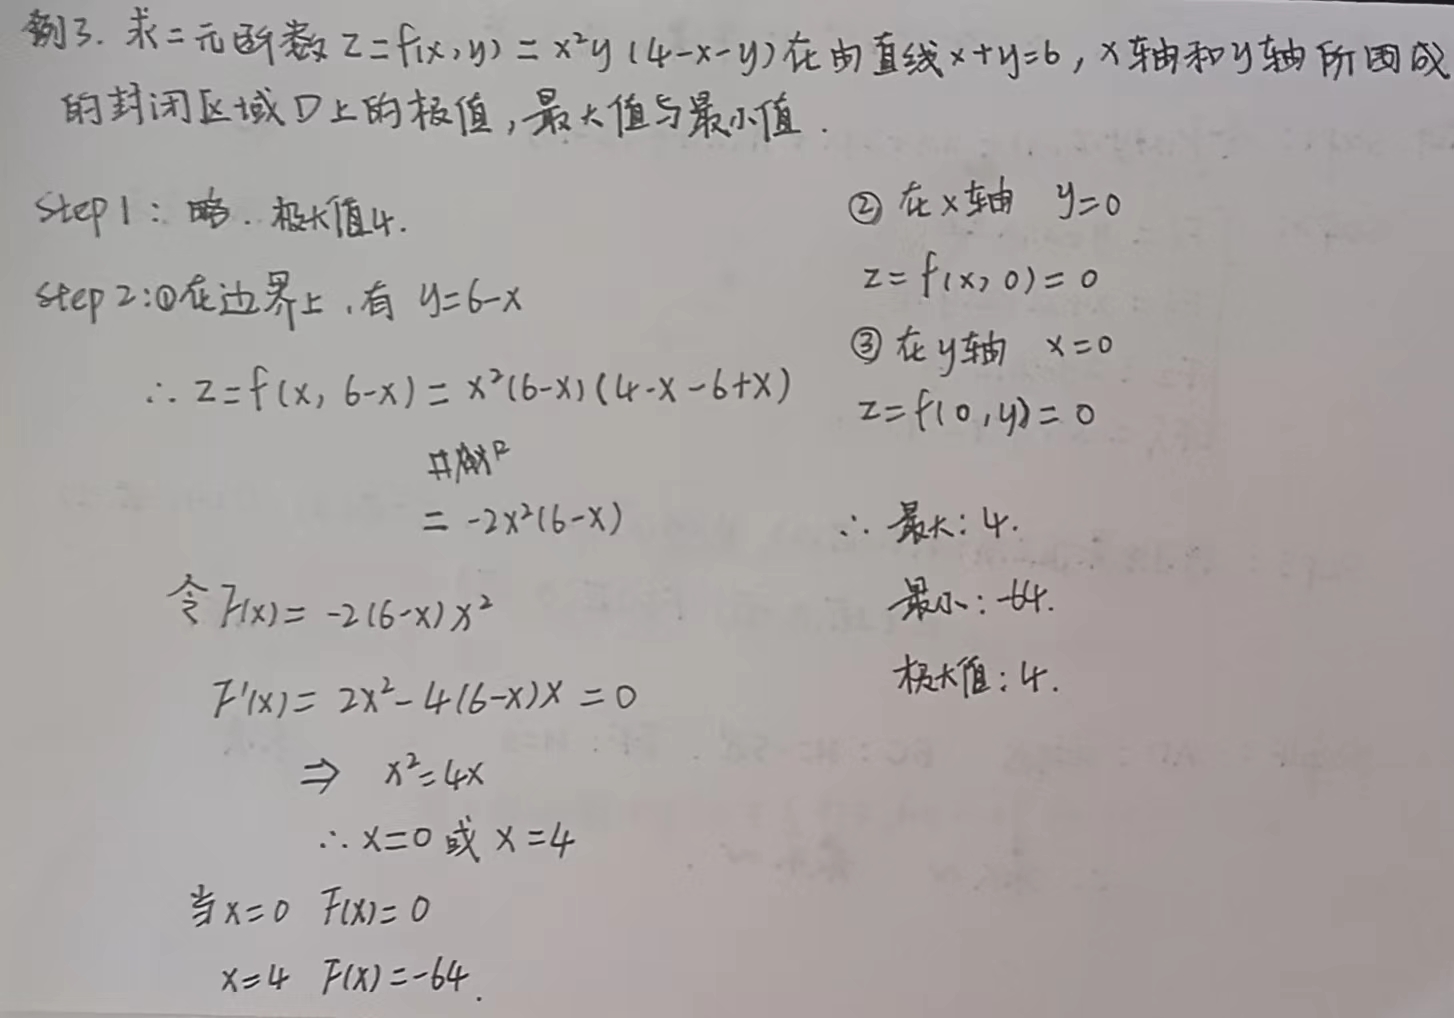 例3. 求二元函数 z=f(x,y)=x²y(4-x-y)在由直线x+y=6,x轴和y轴所围成
的封闭区域D上的极值,最大值与最小值.
Step 1: 略. 极大值4.
Step 2:①在边界上,有 y=6-x
∴ z=f(x, 6-x)=x²(6-x)(4-x-6+x)
=-2x²(6-x)
令 F(x)=-2(6-x)x²
F'(x)=2x²-4(6-x)x=0
⇒ x²=4x
∴ x=0 或 x=4
当x=0 F(x)=0
x=4 F(x)=-64.
② 在x轴 y=0
z=f(x,0)=0
③ 在y轴 x=0
z=f(0,y)=0
∴ 最大: 4.
最小: -64.
极大值: 4.